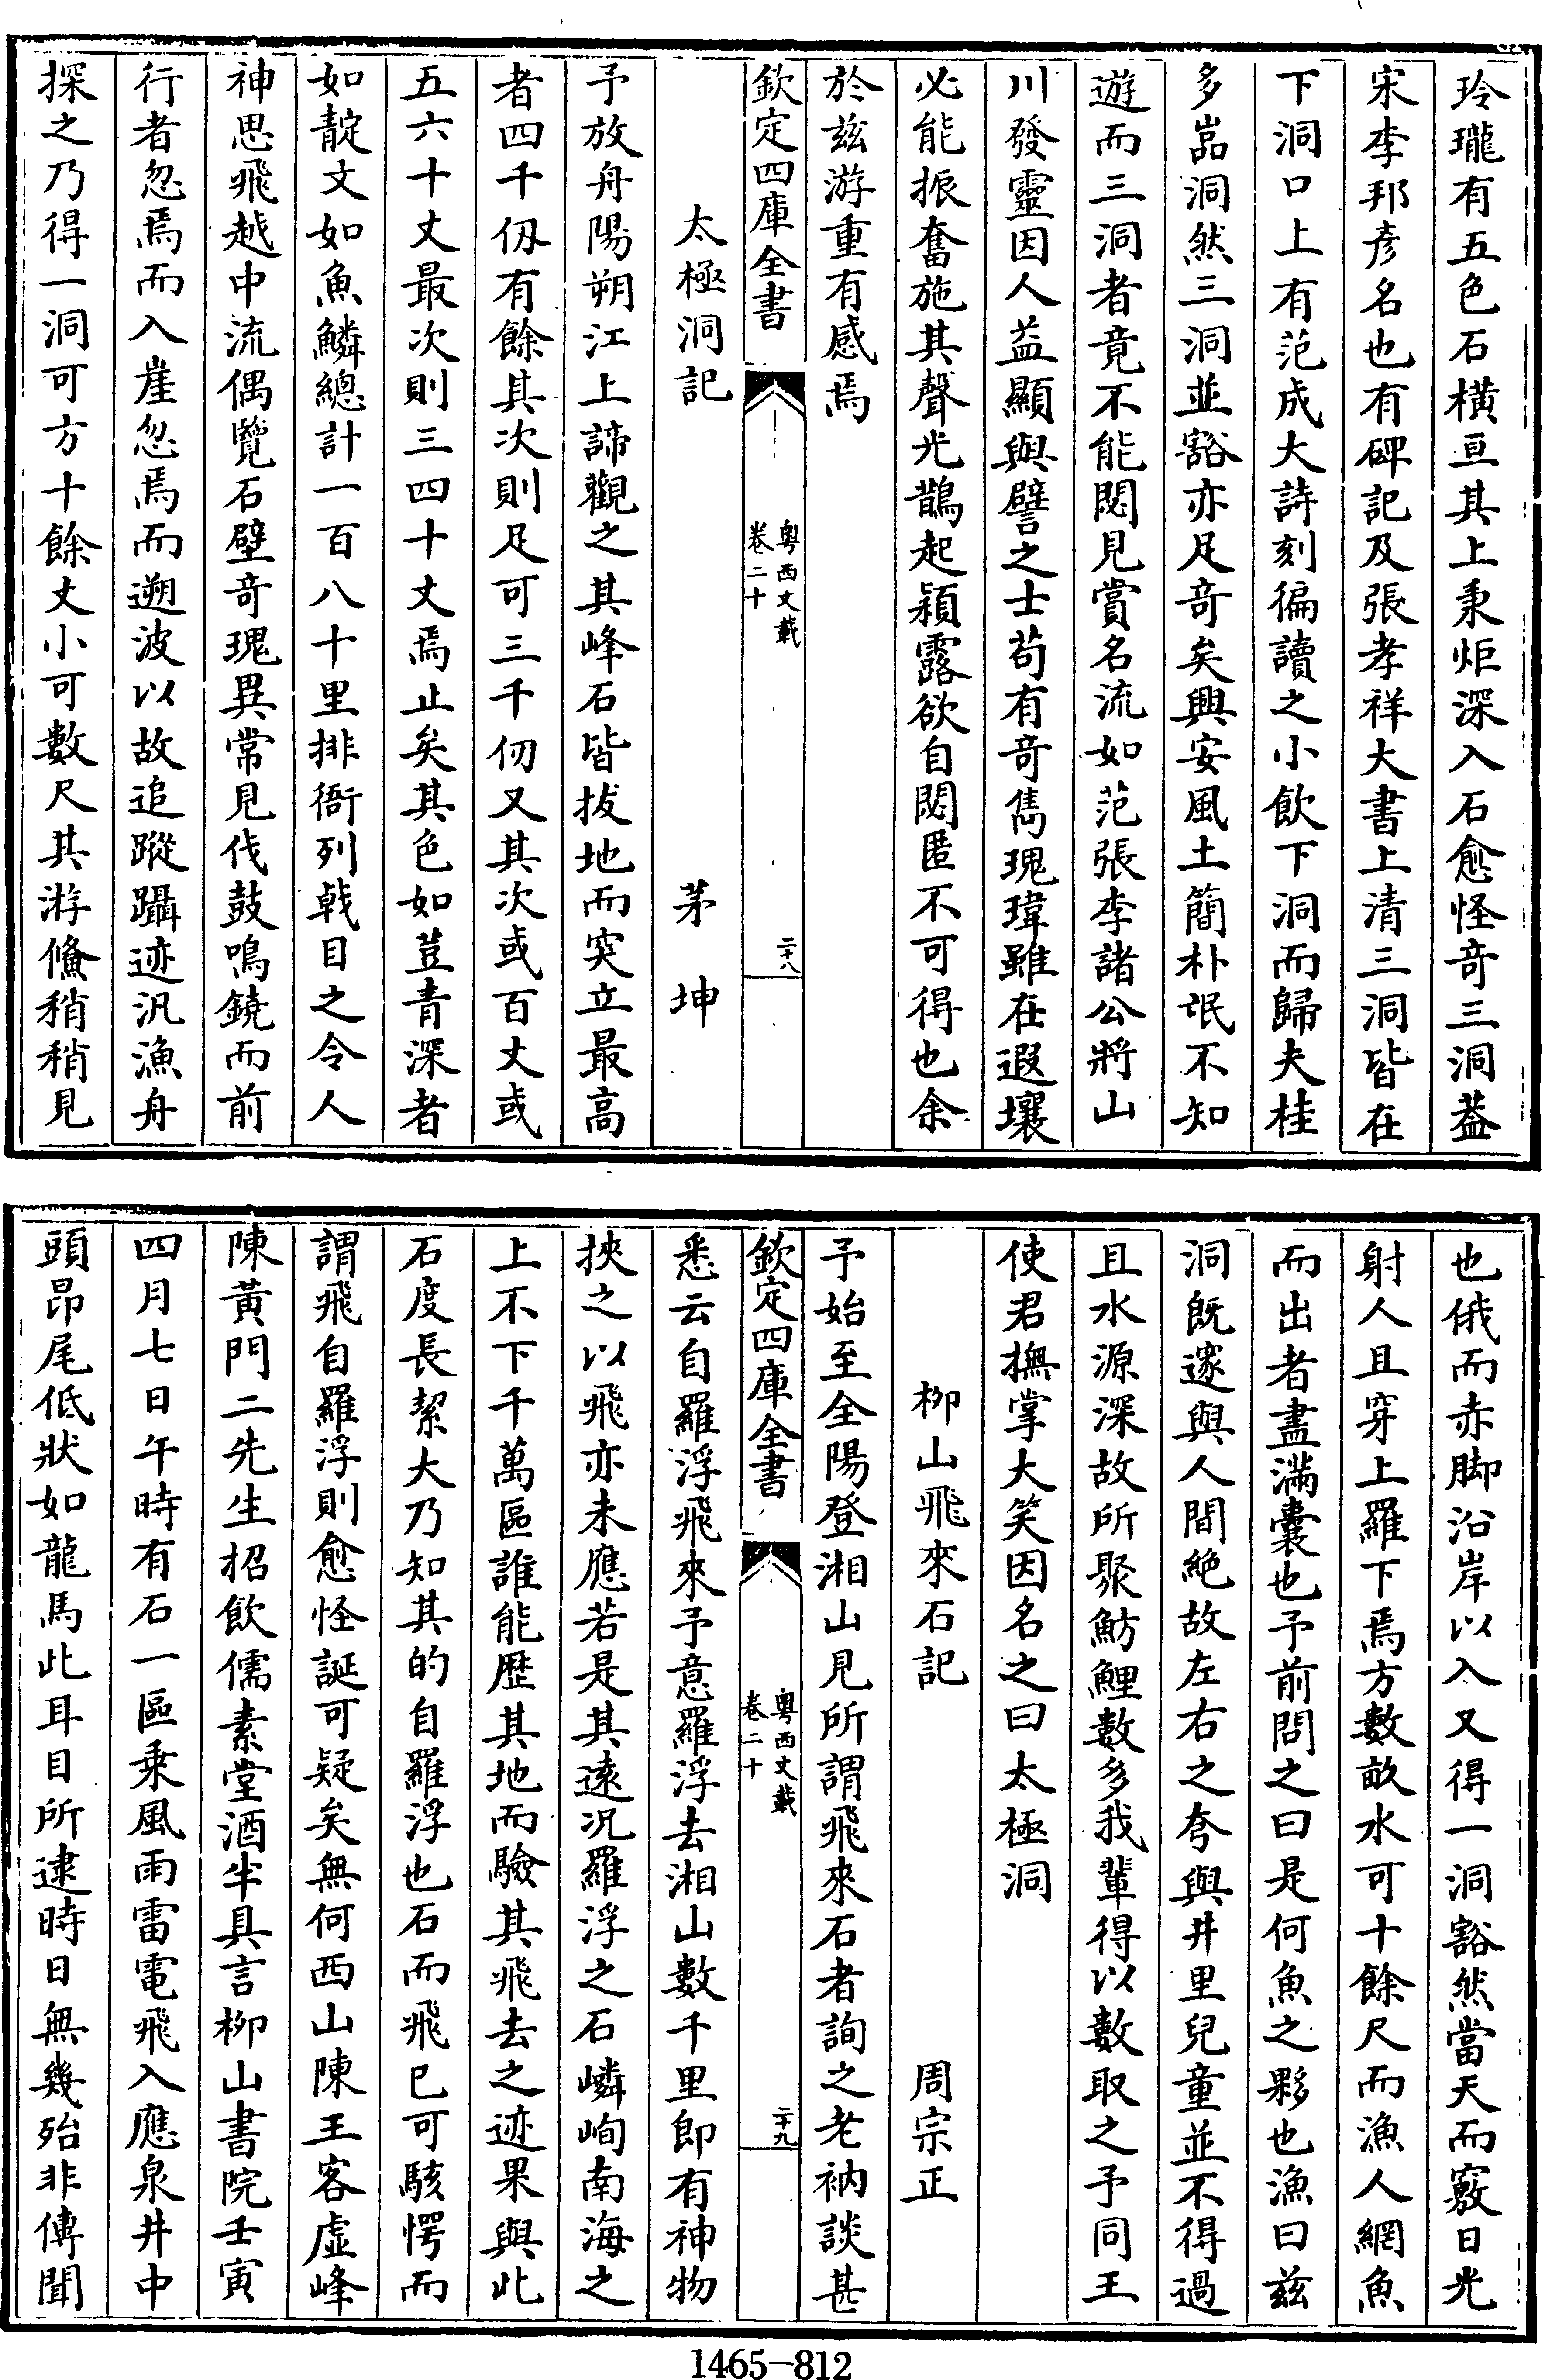 玲瓏有五色石橫亘其上秉炬深入石愈怪奇三洞葢
宋李邦彥名也有碑記及張孝祥大書上清三洞皆在
下洞口上有范成大詩刻徧讀之小飲下洞而歸夫桂
多嵓洞然三洞並豁亦足奇矣興安風土簡朴氓不知
遊而三洞者竟不能閟見賞名流如范張李諸公將山
川發靈因人益顯與譬之士茍有奇雋瑰瑋雖在遐壤
必能振奮施其聲光鵲起穎露欲自閟匿不可得也余
於兹游重有感焉
欽定四庫全書
粵西文載
卷二十
二十八
太極洞記
茅坤
予放舟陽朔江上諦觀之其峰石皆拔地而突立最高
者四千仭有餘其次則足可三千仞又其次或百丈或
五六十丈最次則三四十丈焉止矣其色如荳青深者
如靛文如魚鱗總計一百八十里排衙列戟目之令人
神思飛越中流偶覽石壁竒瑰異常見伐鼓鳴鐃而前
行者忽焉而入崖忽焉而遡波以故追蹤躡迹汎漁舟
探之乃得一洞可方十餘丈小可數尺其游鯈稍稍見
也俄而赤脚沿岸以入又得一洞豁然當天而竅日光
射人且穿上羅下焉方數畝水可十餘尺而漁人網魚
而出者盡滿囊也予前問之曰是何魚之夥也漁曰兹
洞既邃與人間絶故左右之夸與井里兒童並不得過
且水源深故所聚魴鯉數多我輩得以數取之予同王
使君撫掌大笑因名之曰太極洞
栁山飛來石記
周宗正
予始至全陽登湘山見所謂飛來石者詢之老衲談甚
欽定四庫全書
粵西文載
卷二十
二十九
悉云自羅浮飛來予意羅浮去湘山數千里即有神物
挾之以飛亦未應若是其逺况羅浮之石嶙峋南海之
上不下千萬區誰能歴其地而驗其飛去之迹果與此
石度長絜大乃知其的自羅浮也石而飛已可駭愕而
謂飛自羅浮則愈怪誕可疑矣無何西山陳王客虛峰
陳黃門二先生招飲儒素堂酒半具言栁山書院壬寅
四月七日午時有石一區乘風雨雷電飛入應泉井中
頭昂尾低狀如龍馬此耳目所逮時日無幾殆非傳聞
1465-812